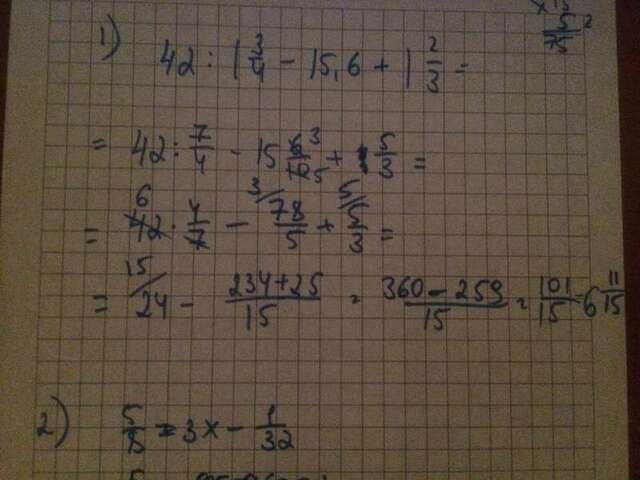 1) 42 : 1 3/4 - 15,6 + 1 2/3 =
= 42 : 7/4 - 15 6/10 + 5/3 =
= 42 · 4/7 - 78/5 + 5/3 =
= 24 - 234+25/15 = 360-259/15 = 101/15 = 6 11/15
2) 5/8 = 3x - 1/32